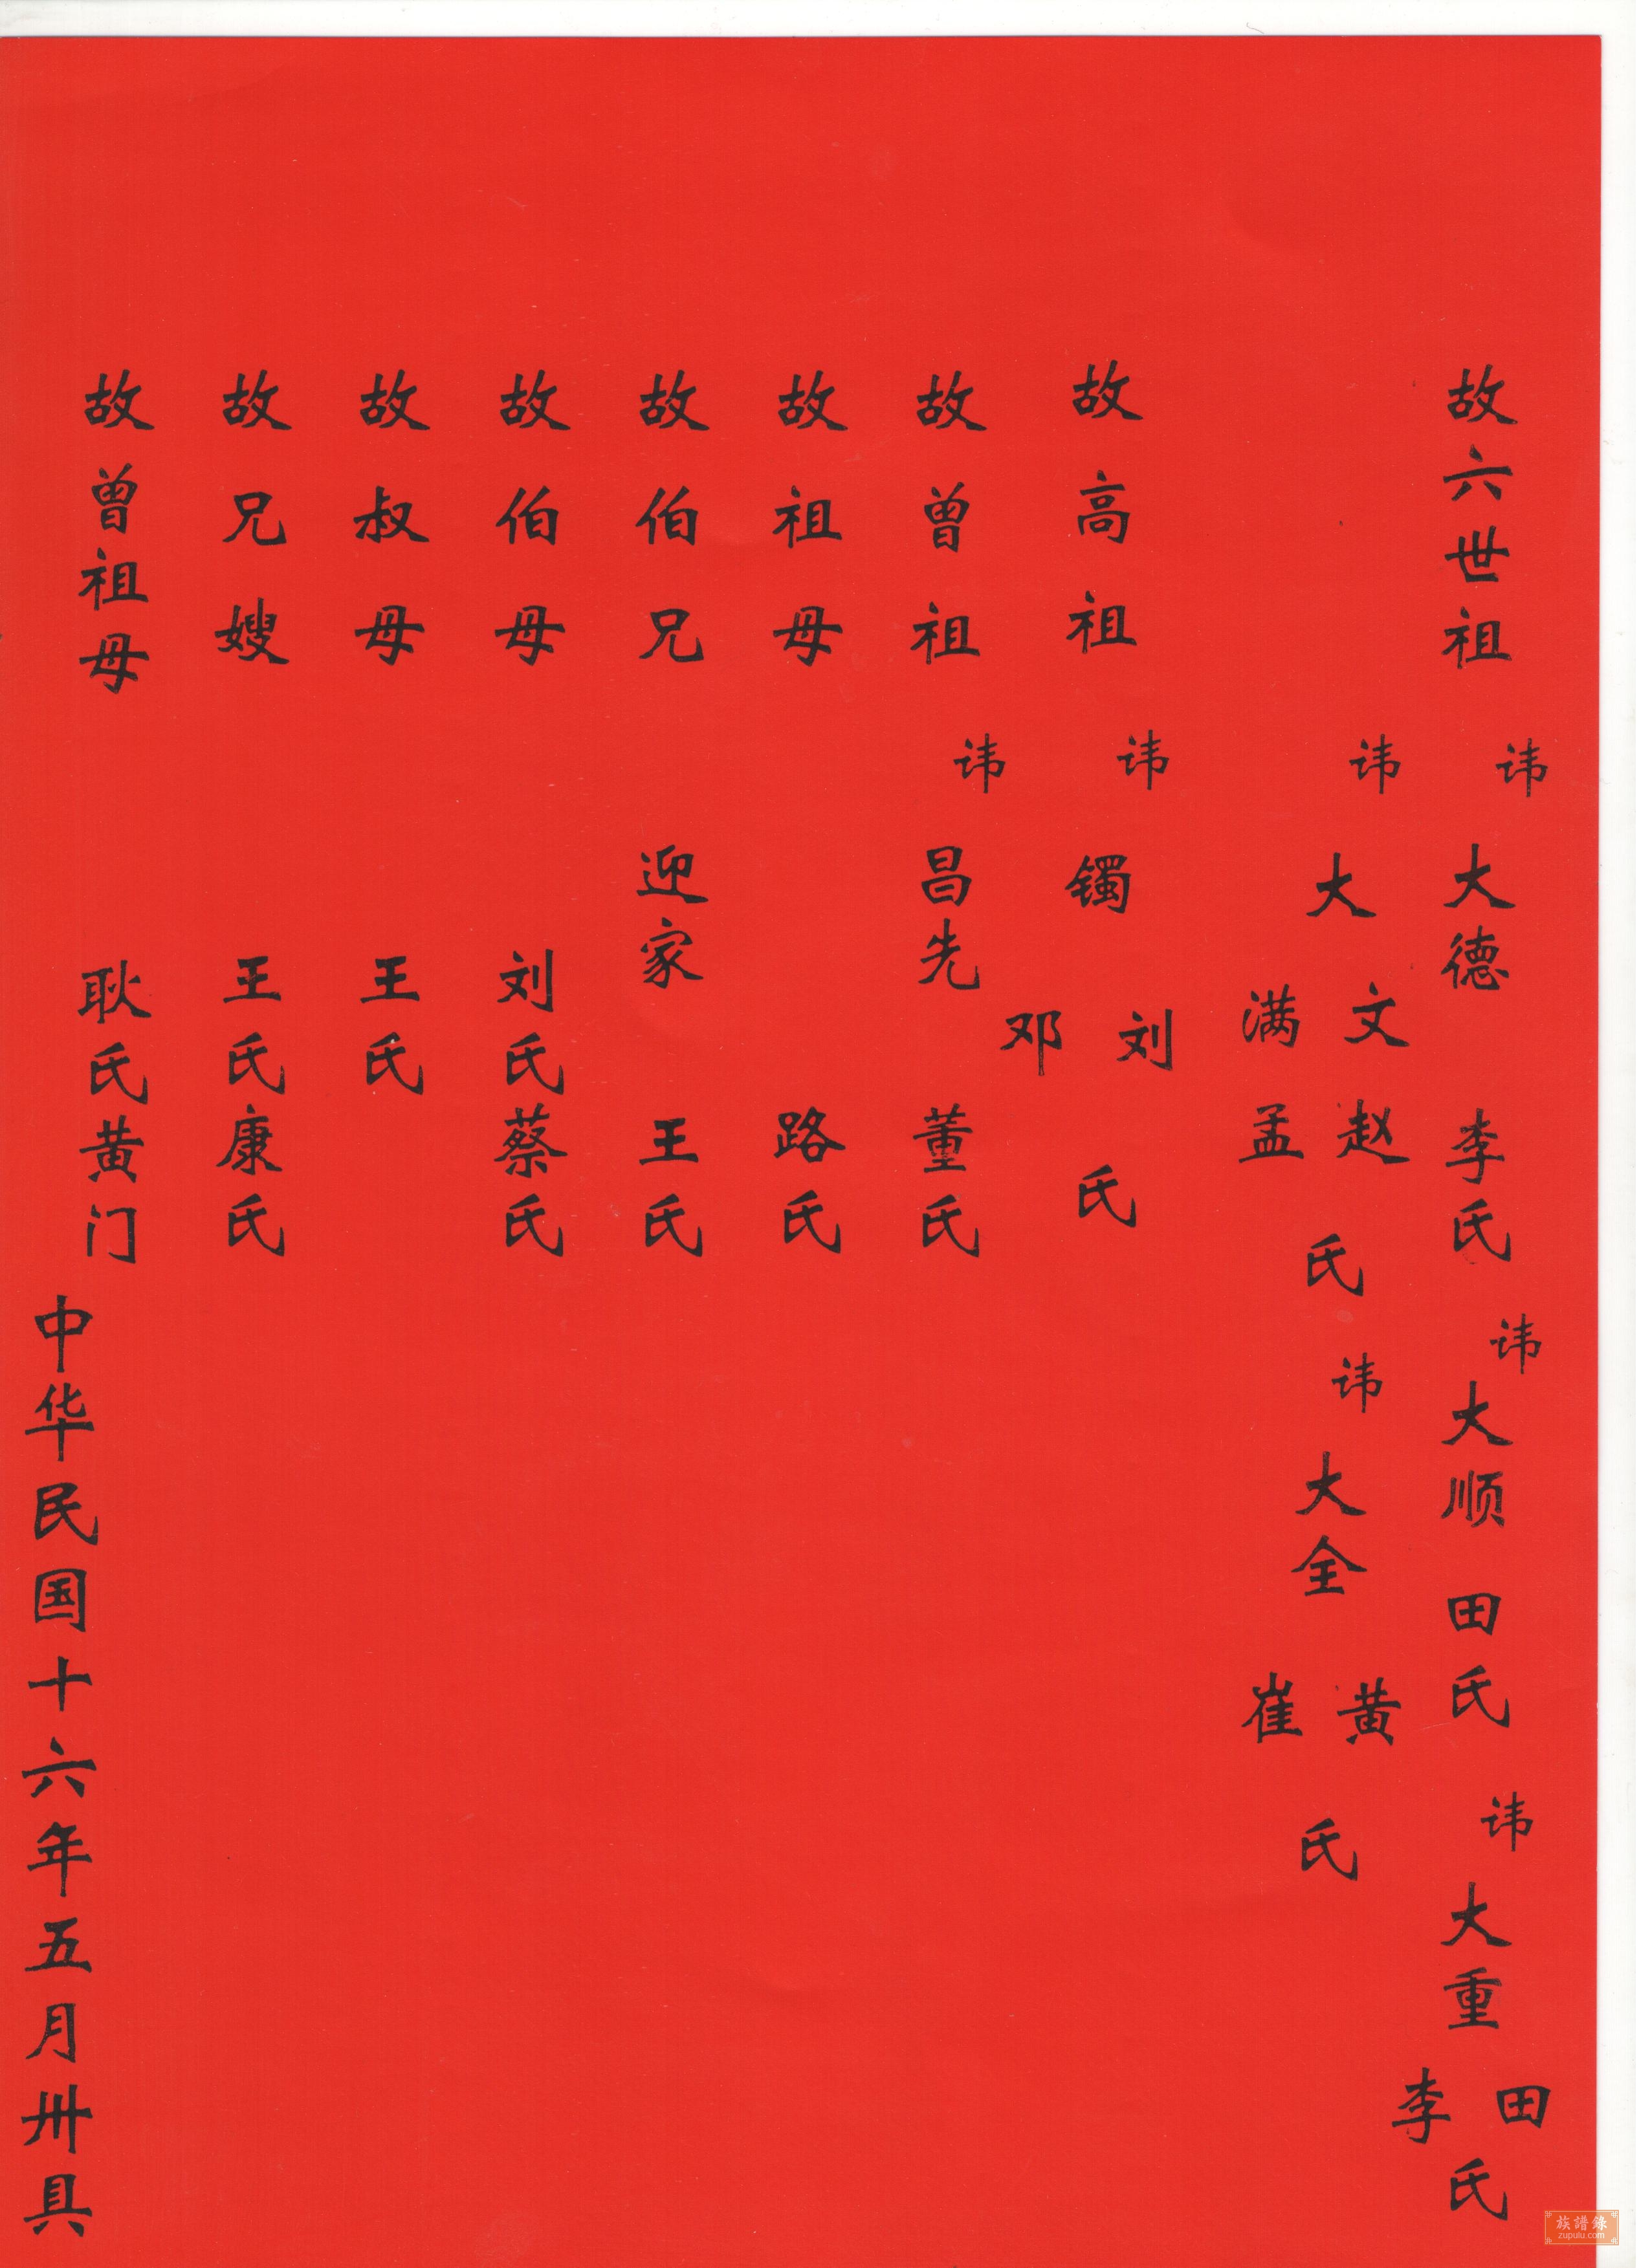 故六世祖 讳大德 李氏 讳大顺 田氏 讳大重 田李氏
讳大文满 赵孟氏 讳大全 黄崔氏
故高祖 讳镯 刘邓氏
故曾祖 讳昌先 董氏
故祖母 路氏
故伯兄 迎家 王氏
故伯母 刘氏蔡氏
故叔母 王氏
故兄嫂 王氏康氏
故曾祖母 耿氏黄门
中华民国十六年五月卅具
族譜錄
zupulu.com